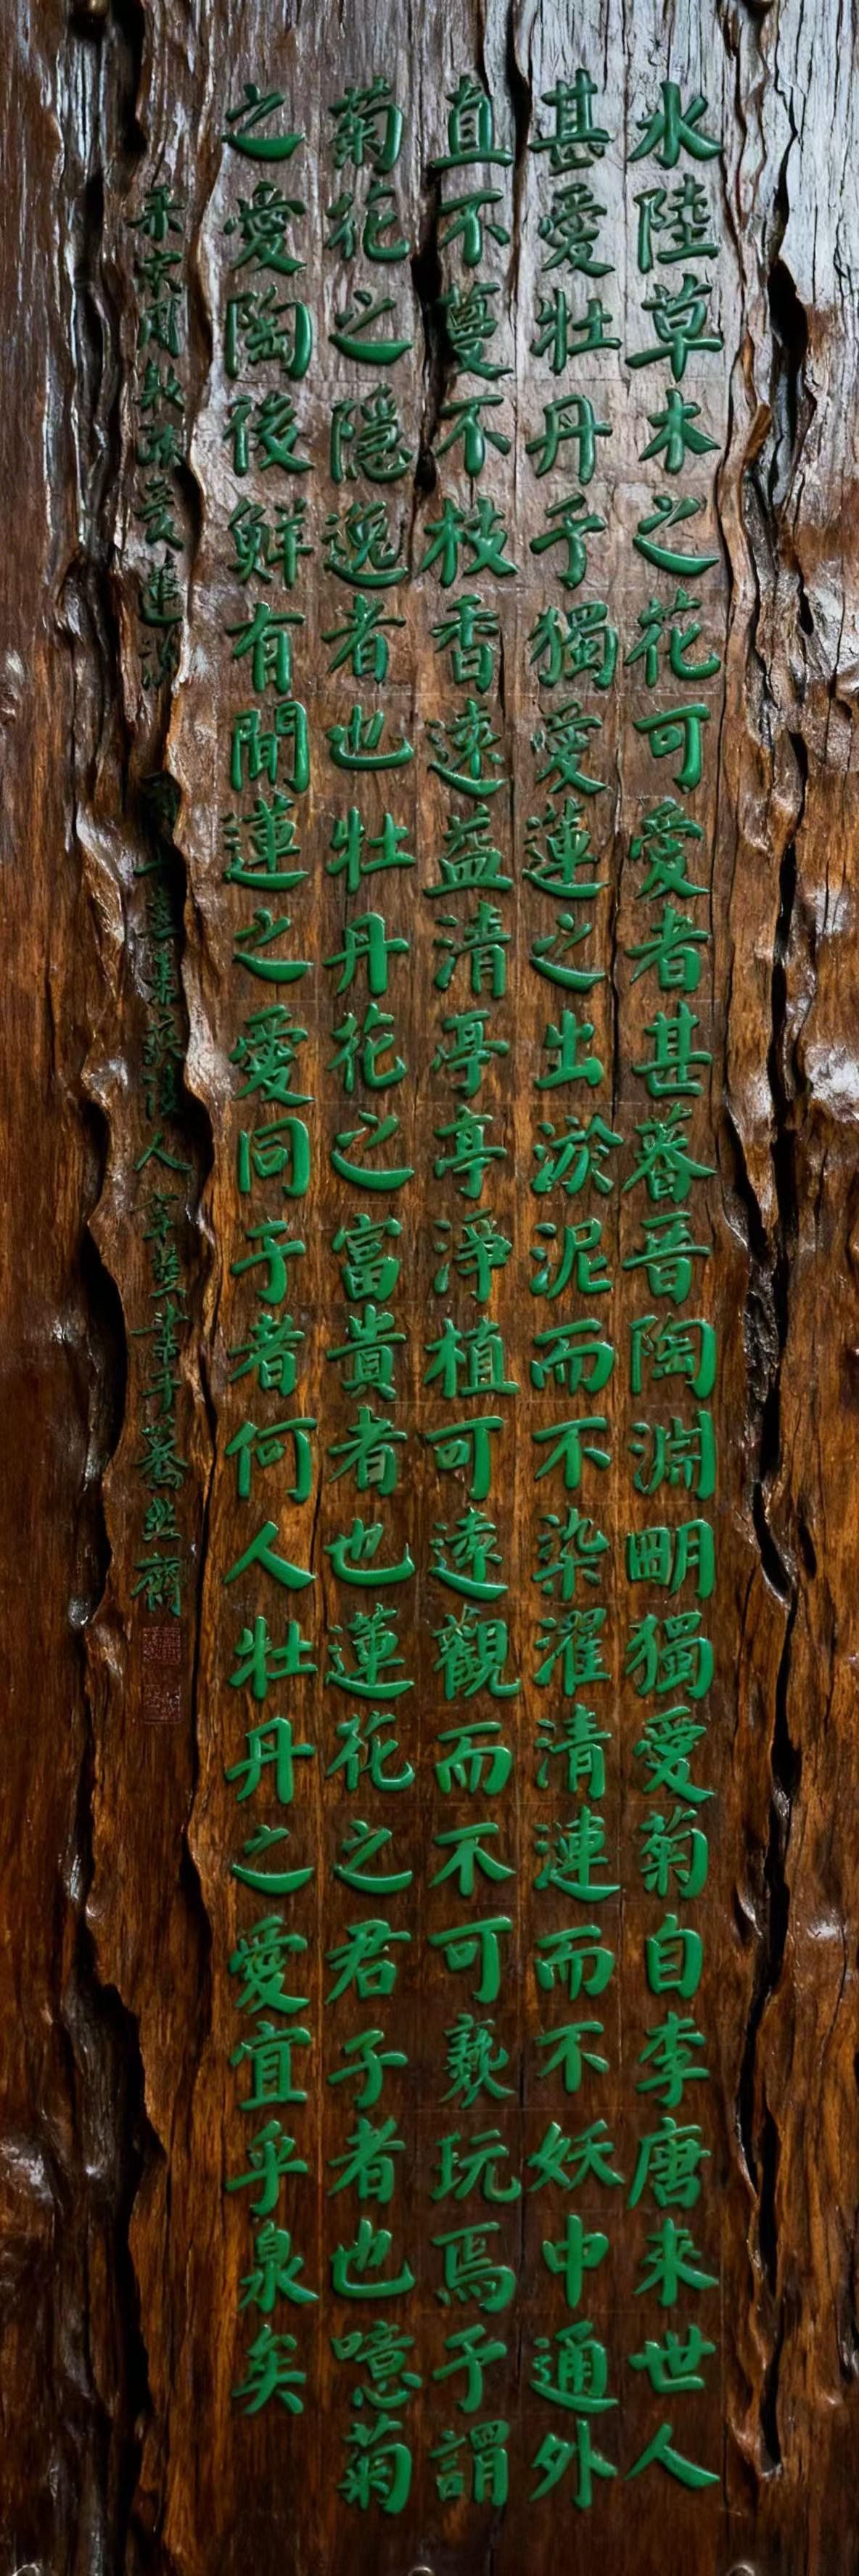 水陸草木之花可愛者甚蕃晉陶淵明獨愛菊自李唐來世人
甚愛牡丹予獨愛蓮之出淤泥而不染濯清漣而不妖中通外
直不蔓不枝香遠益清亭亭淨植可遠觀而不可褻玩焉予謂
菊花之隱逸者也牡丹花之富貴者也蓮花之君子者也噫菊
之愛陶後鮮有聞蓮之愛同于者何人牡丹之愛宜乎泉矣
宋周敦頤愛蓮說 人 書于 齋